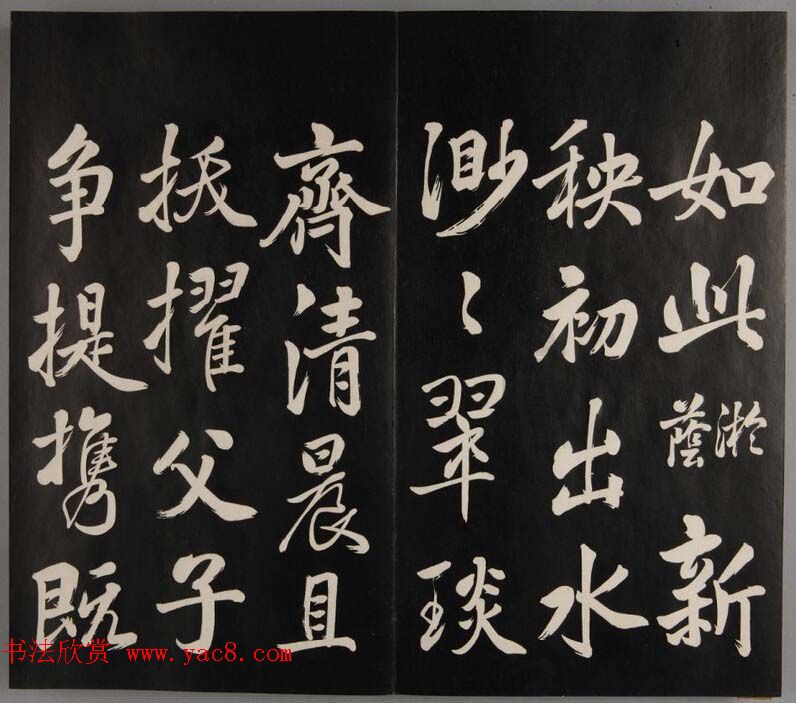 如此 淤蔭 新
秧初出水
渺〻翠琰
齊清晨且
拔擢父子
争提携既
书法欣赏 www.yac8.com